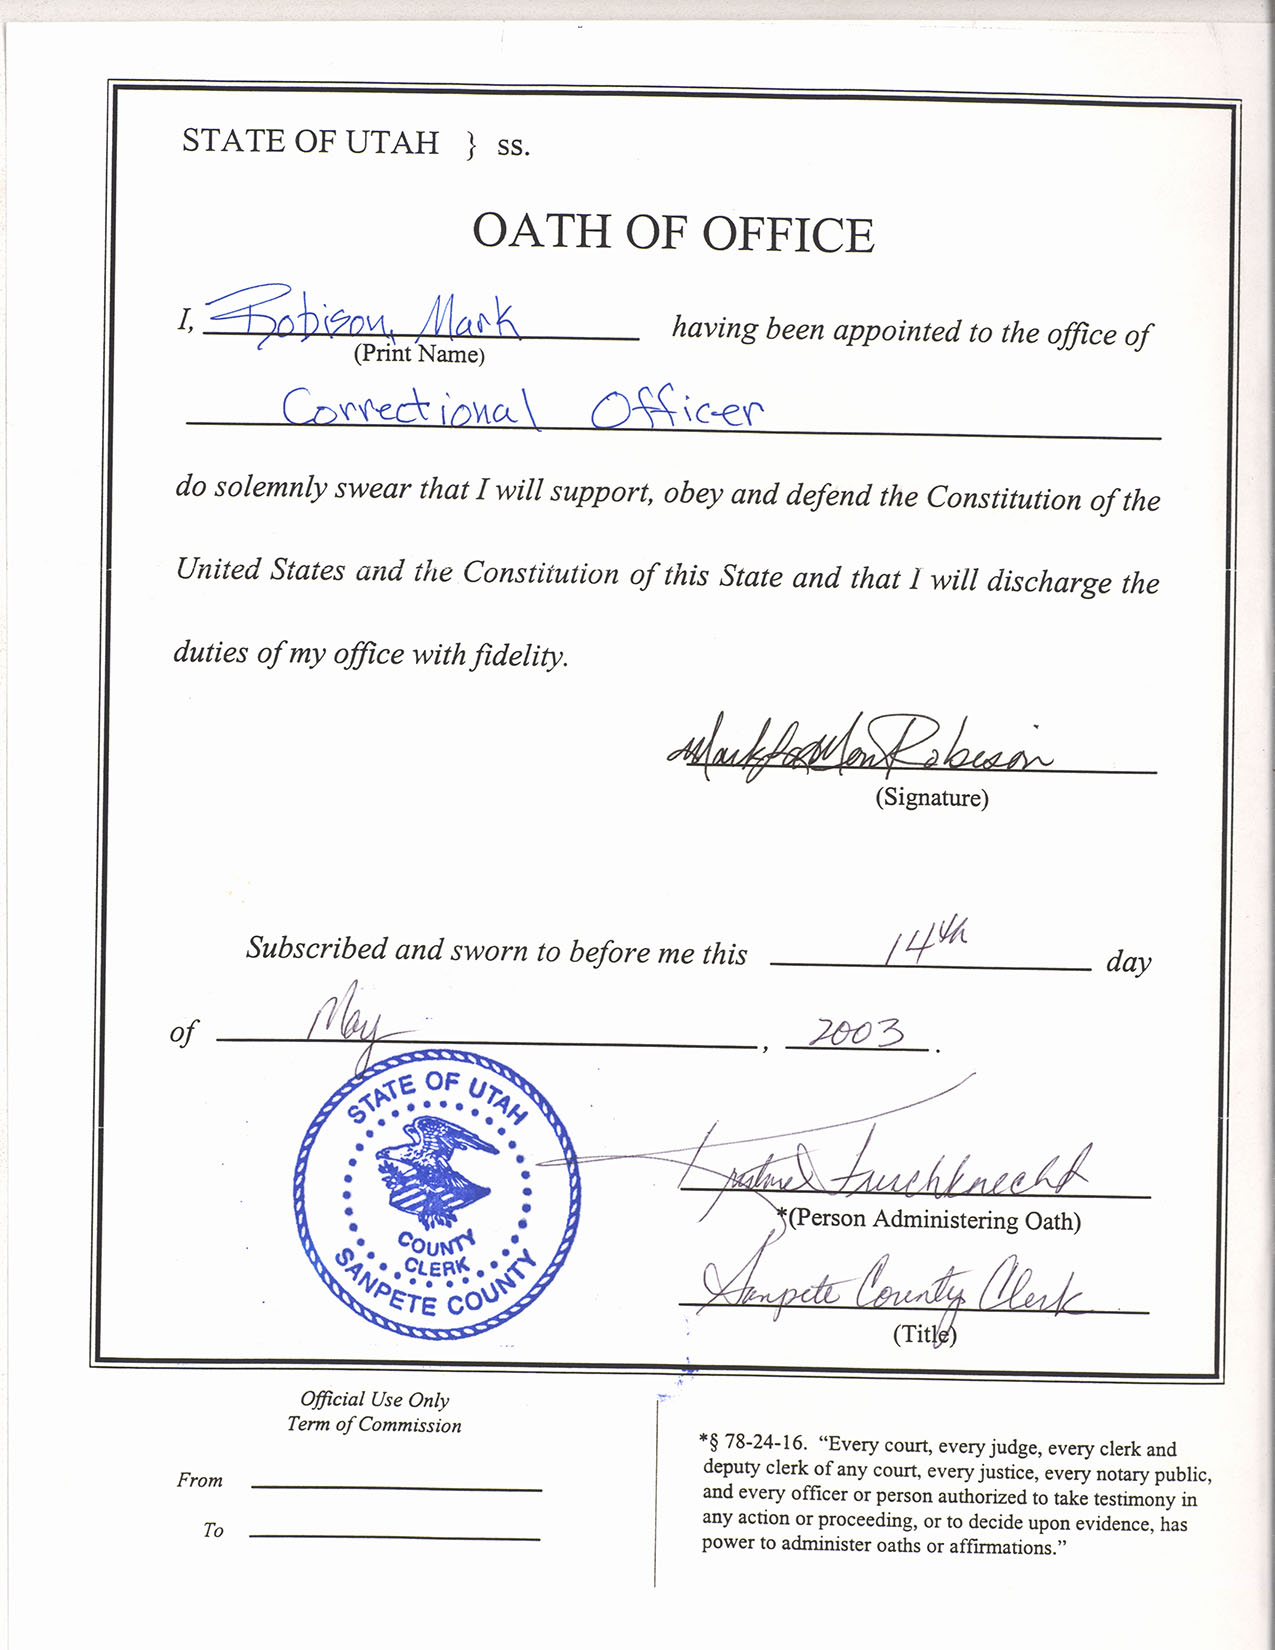 STATE OF UTAH } ss.
OATH OF OFFICE
I, Robison, Mark having been appointed to the office of
(Print Name)
Correctional Officer
do solemnly swear that I will support, obey and defend the Constitution of the
United States and the Constitution of this State and that I will discharge the
duties of my office with fidelity.
Mark Robison
(Signature)
Subscribed and sworn to before me this 14th day
of May, 2003.
STATE OF UTAH
COUNTY
CLERK
SANPETE COUNTY
Frischknecht
*(Person Administering Oath)
Sanpete County Clerk
(Title)
Official Use Only
Term of Commission
From
To
*§ 78-24-16. “Every court, every judge, every clerk and
deputy clerk of any court, every justice, every notary public,
and every officer or person authorized to take testimony in
any action or proceeding, or to decide upon evidence, has
power to administer oaths or affirmations.”